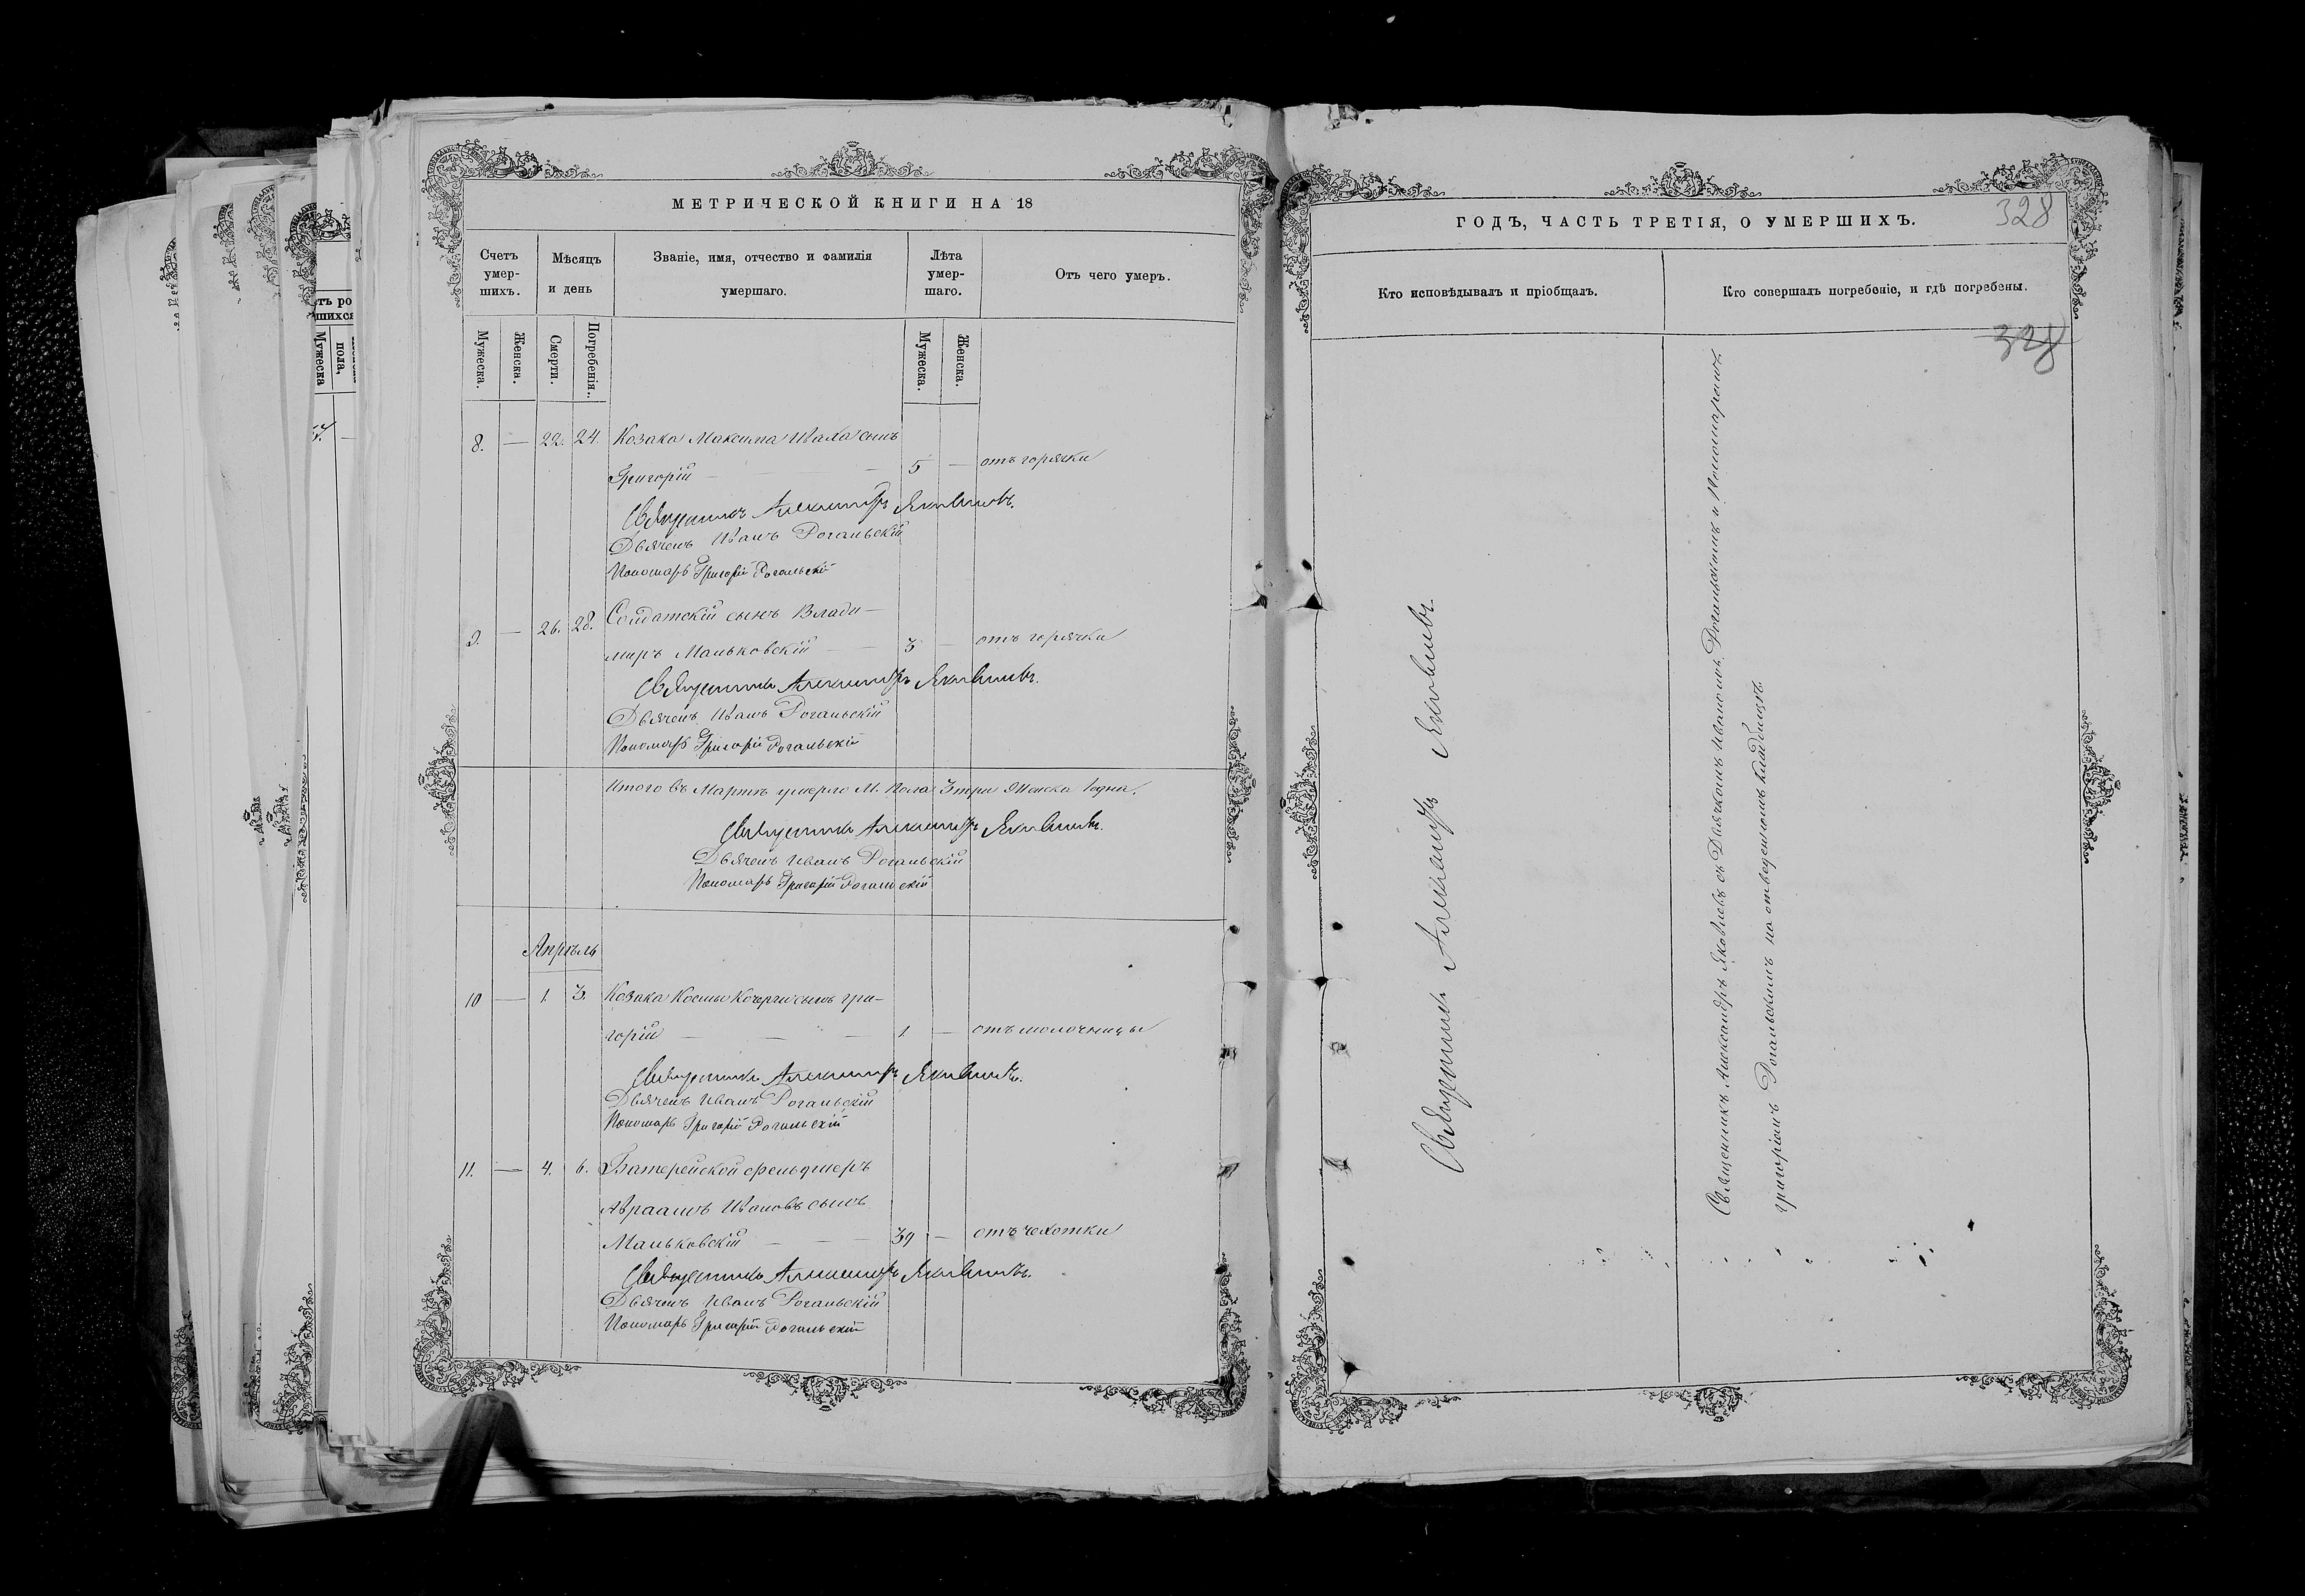 МЕТРИЧЕСКОЙ КНИГИ НА 18
Счетъ умер-шихъ.
Мѣсяцъ и день
Званіе, имя, отчество и фамилія умершаго.
Лѣта умер-шаго.
Отъ чего умеръ.
Мужеска.
Женска.
Смерти.
Погребенія.
Мужеска.
Женска.
8. — 22. 24. Козака Максима Шаха сынъ
Григорій — — 5 — отъ горячки
Священникъ Александръ Яковлевъ.
Дьячекъ Иванъ Рогальскій
Пономарь Григорій Рогальскій
9. — 26. 28. Солдатскій сынъ Влади-
миръ Мальковскій — — 3 — отъ горячки
Священникъ Александръ Яковлевъ.
Дьячекъ Иванъ Рогальскій
Пономарь Григорій Рогальскій
Итого въ Мартѣ умерло М. пола 3 три Женска 1 одна.
Священникъ Александръ Яковлевъ.
Дьячекъ Иванъ Рогальскій
Пономарь Григорій Рогальскій
Апрѣль
10 — 1. 3. Козака Космы Кочерги сынъ Гри-
горій — — — 1 — отъ молочницы
Священникъ Александръ Яковлевъ.
Дьячекъ Иванъ Рогальскій
Пономарь Григорій Рогальскій
11. — 4. 6. Батерейской фельдшеръ
Авраамъ Ивановъ сынъ
Мальковскій — — — 39 — отъ чехотки
Священникъ Александръ Яковлевъ.
Дьячекъ Иванъ Рогальскій
Пономарь Григорій Рогальскій
ГОДЪ, ЧАСТЬ ТРЕТІЯ, О УМЕРШИХЪ.
328
Кто исповѣдывалъ и пріобщалъ.
Кто совершалъ погребеніе, и гдѣ погребены.
328
Священникъ Александръ Яковлевъ.
Священникъ Александръ Яковлевъ съ Дьячкомъ Иваномъ Рогальскимъ и Пономаремъ
Григоріемъ Рогальскимъ на отведенномъ кладбищѣ.